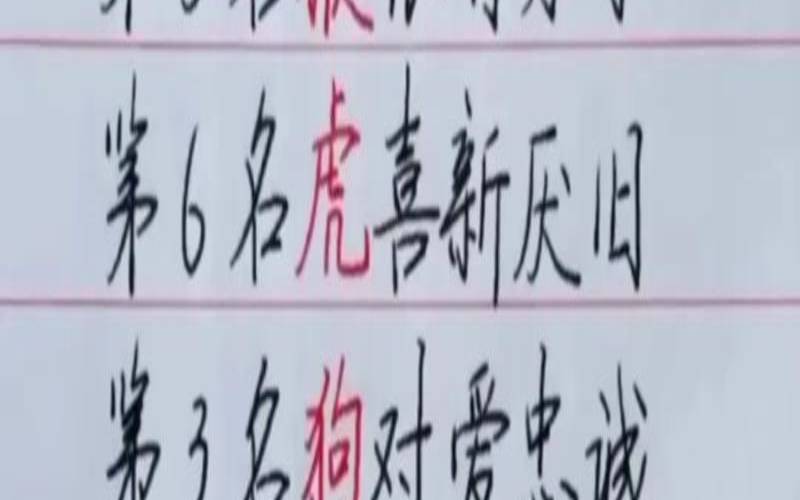 第6名虎喜新厌旧
第3名狗对爱忠诚